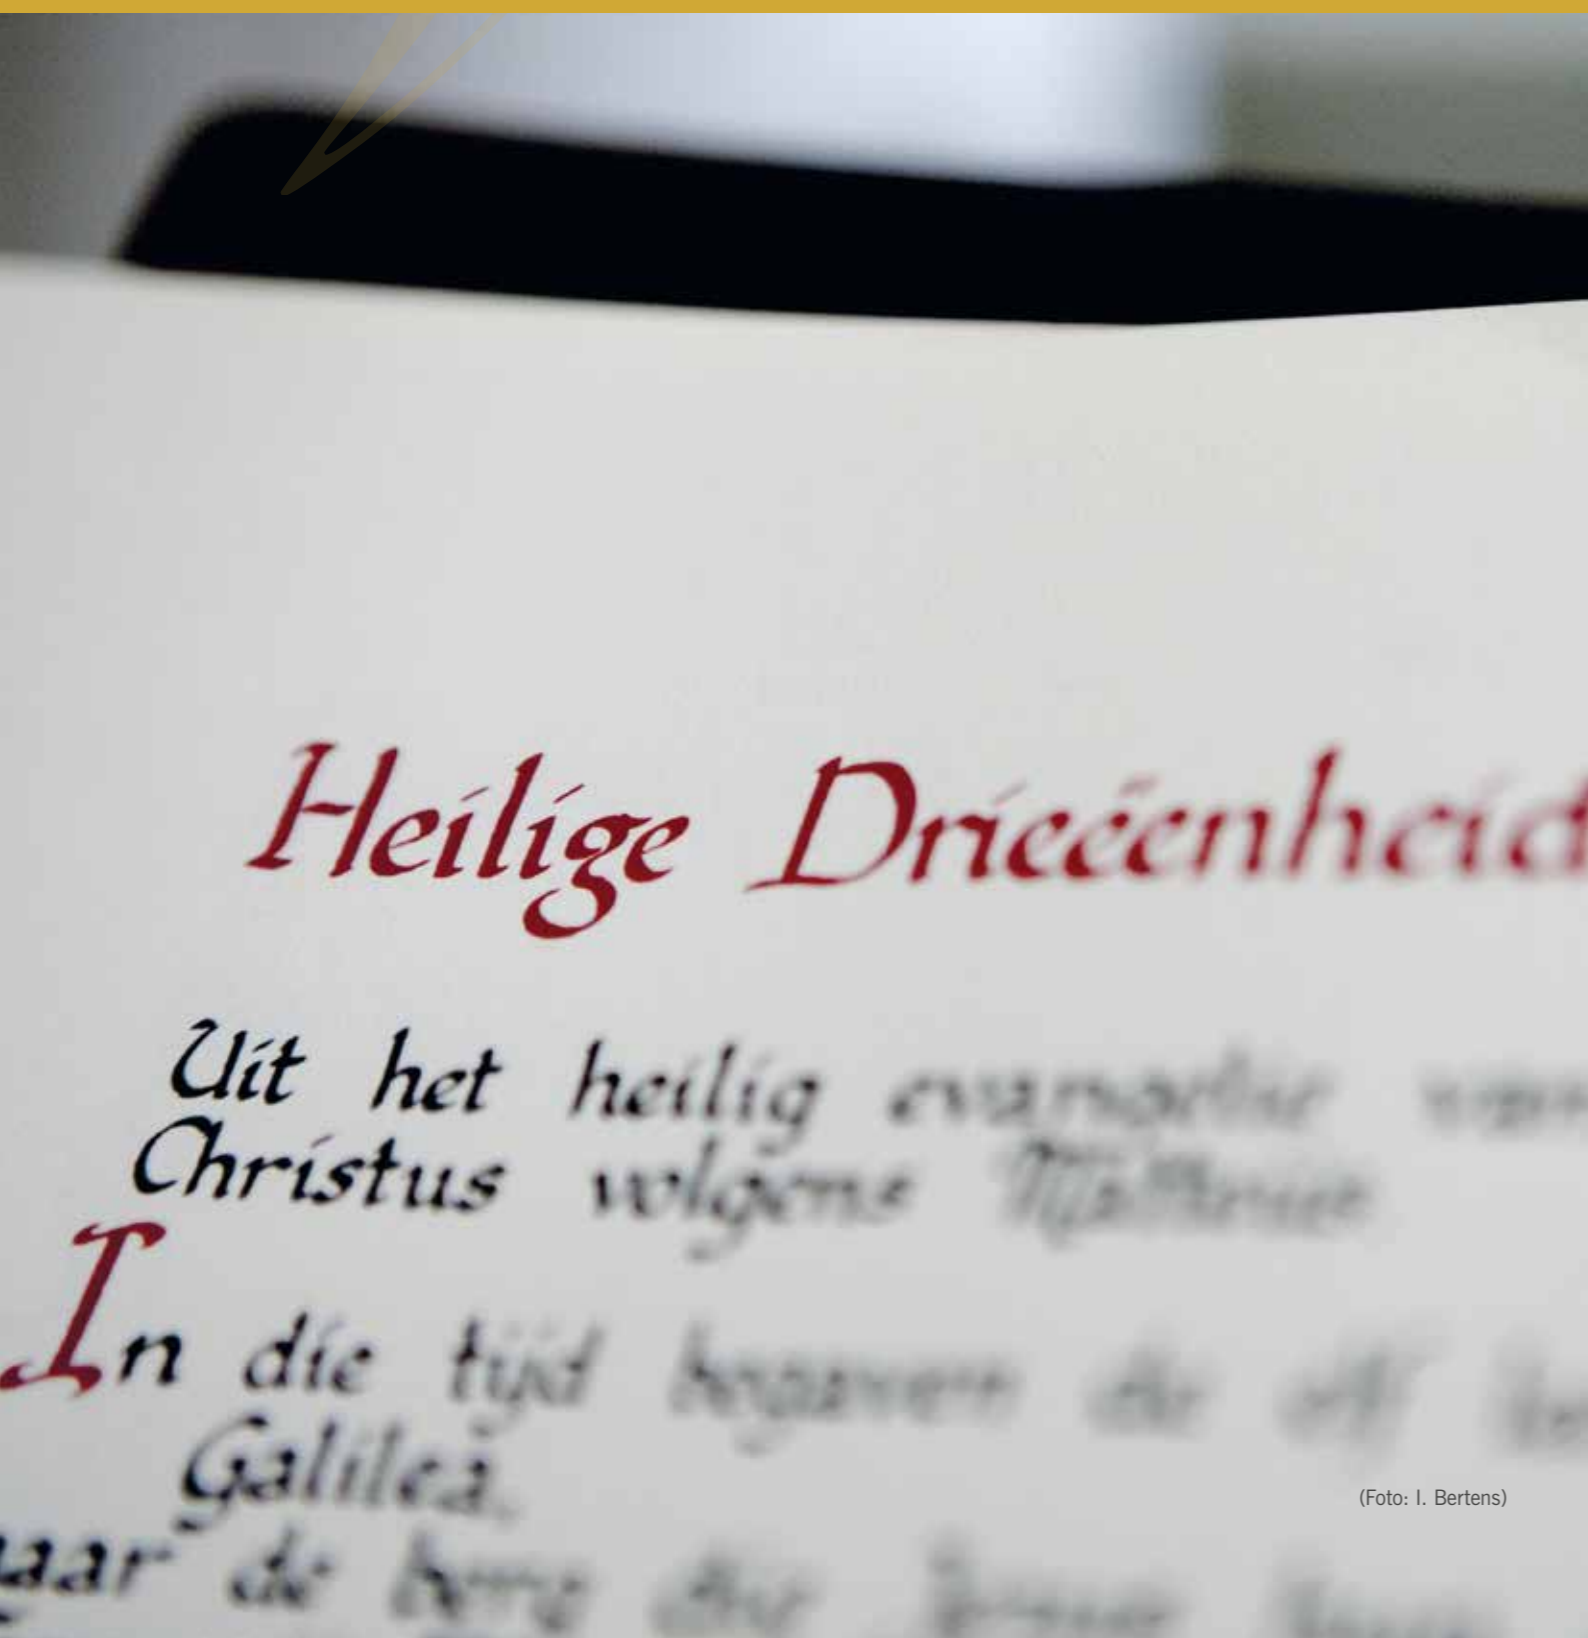 Heilige Drieëenheid
Uit het heilig evangelie van
Christus volgens Matteüs
In die tijd begaven de elf
Galilea,
naar de berg die Jezus
(Foto: I. Bertens)